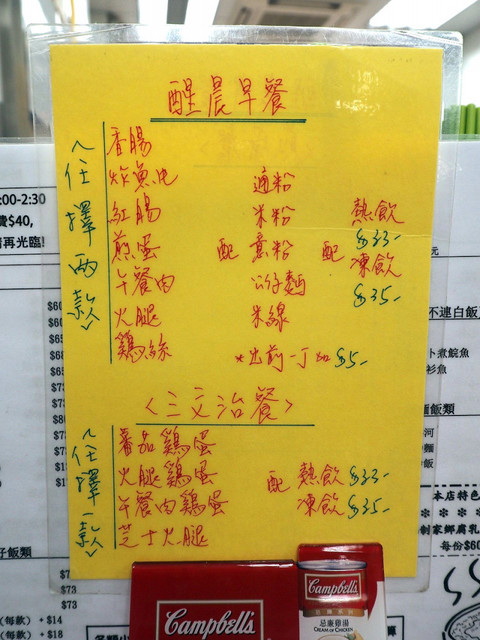 醒晨早餐
︿任擇兩款﹀
香腸
炸魚片
紅腸
煎蛋
午餐肉
火腿
鷄絲
配
通粉
米粉
意粉
公仔麵
米線
*出前一丁加$5-
配
熱飲
$33-
凍飲
$35-
〈三文治餐〉
︿任擇一款﹀
蕃茄鷄蛋
火腿鷄蛋
午餐肉鷄蛋
芝士火腿
配 熱飲 $33-
凍飲 $35-
:00-2:30
費$40,
請再光臨!
不連白飯
卜煮鯇魚
飯類
河
麵
飯
本店特色
制家鄉腐乳
每份$60
$73
$73
(每款)・$14
(每款)・$18
Campbell's
Campbell's
總統雞湯
CREAM OF CHICKEN